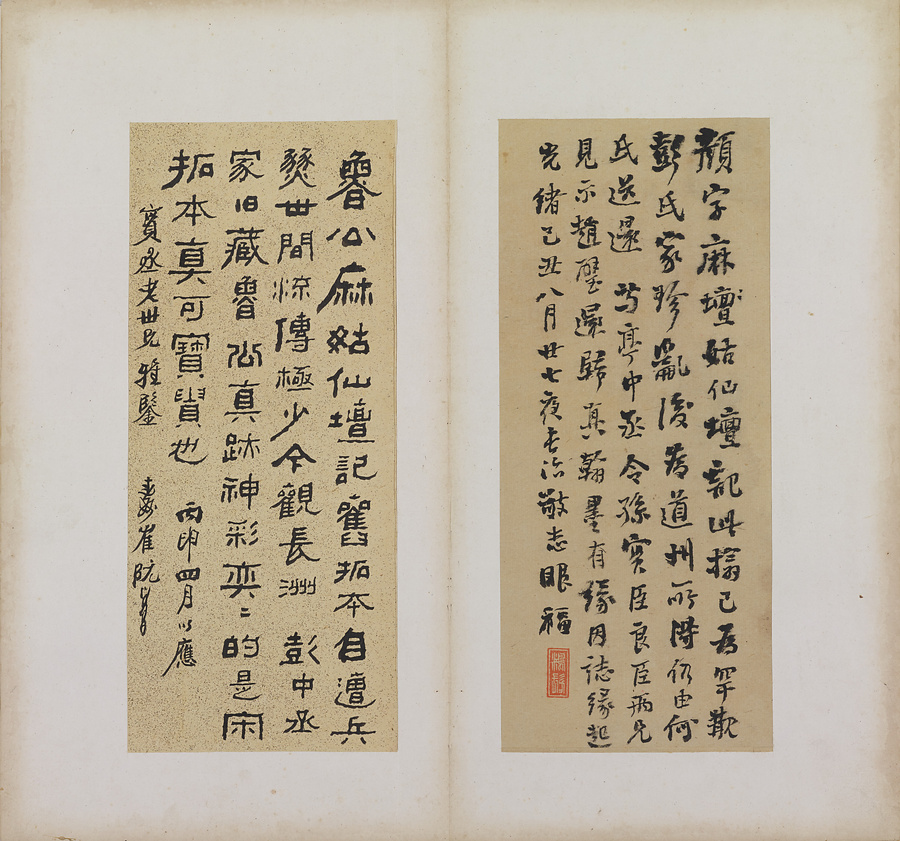 顏字麻壇姑仙壇記此搨已為罕覯
彭氏家珍飄後為道州所得仍由何
氏送還 芍亭中丞令孫實臣良臣兩兄
見示趙璧還歸真翰墨有緣因誌緣起
光緒己丑八月廿七夜 敬志眼福
魯公麻姑仙壇記舊拓本自遭兵
燹世間流傳極少今觀長洲 彭中丞
家旧藏魯公真跡神彩奕〻的是宋
拓本真可寶貴也 丙申四月以應
寶丞老世兄雅鑒 崔阮